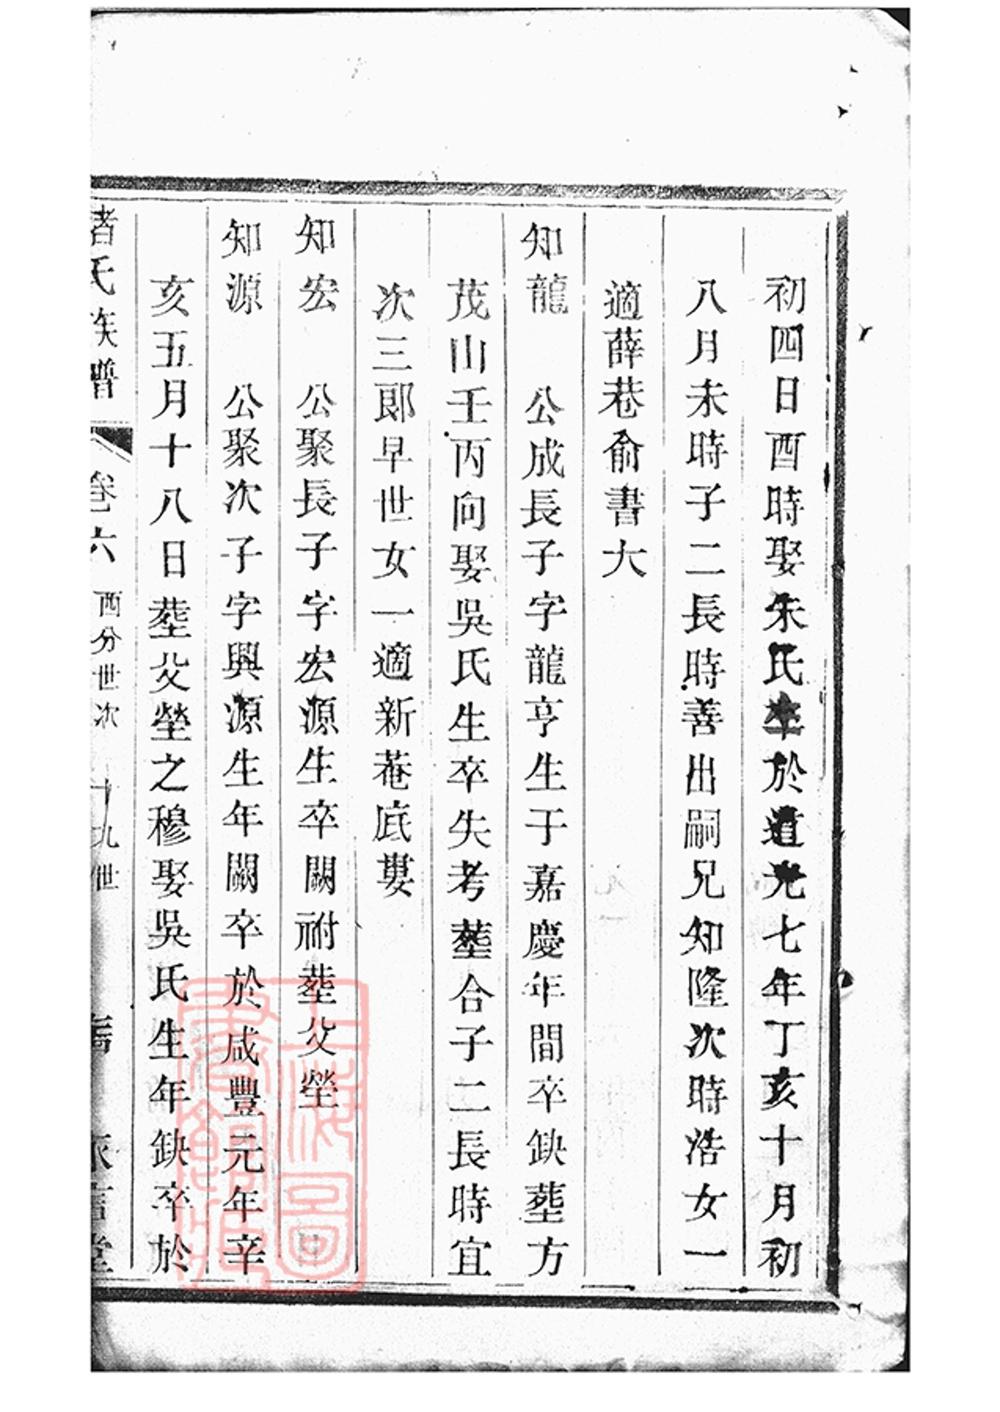 初四日酉時娶朱氏卒於道光七年丁亥十月初
八月未時子二長時善出嗣兄知隆次時浩女一
適薛巷俞書大
知龍　公成長子字龍亨生于嘉慶年間卒缺塟方
茂山壬丙向娶吳氏生卒失考塟合子二長時宜
次三郎早世女一適新菴底婁
知宏　公聚長子字宏源生卒闕祔塟父塋
知源　公聚次子字興源生年闕卒於咸豐元年辛
亥五月十八日塟父塋之穆娶吳氏生年缺卒於
氏族譜　卷六　西分世次　十九世
上海圖書館藏